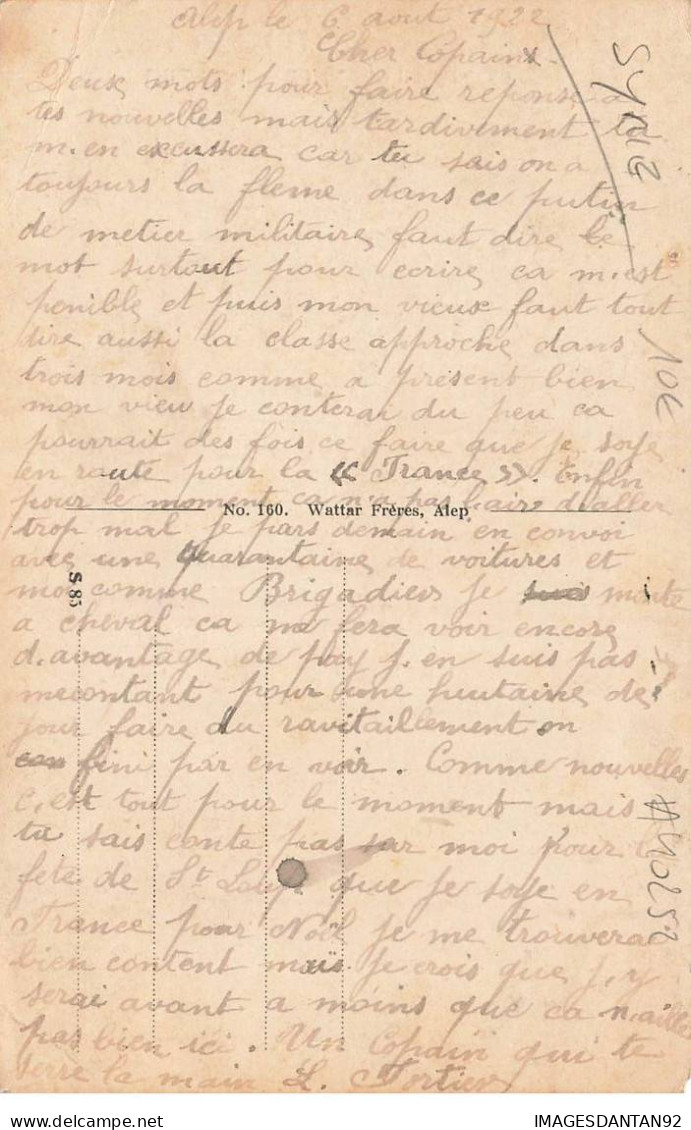 Alep le 6 aout 1922
Cher Copain
Deux mots pour faire reponse a
tes nouvelles mais tardivement tu
m.en excussera car tu sais on a
toujours la fleme dans ce putin
de metier militaire, faut dire le
mot surtout pour ecrire ca m.est
penible et puis mon vieux faut tout
dire aussi la classe approche dans
trois mois comme a présent bien
mon vieu je conterai du peu ca
pourrait des fois ce faire que je soye
en route pour la « France ». Enfin
pour le moment ca n'a pas l.air d.aller
No. 160. Wattar Frères, Alep
trop mal je pars demain en convoi
avec une quarantaine de voitures et
S 85
moi comme Brigadier je suis monte
a cheval ca me fera voir encore
d.avantage de pay j.en suis pas
mecontant pour une huitaine de
jour faire du ravitaillement on
fini par en voir. Comme nouvelles
c.est tout pour le moment mais
tu sais conte pas sur moi pour la
fete de St Loup que je soye en
France pour Noël je me trouverai
bien content mais je crois que j.y
serai avant a moins que ca n.aille
pas bien ici. Un Copain qui te
serre la main L. Fortier
SYRIE
10€
H40252
IMAGESDANTAN92